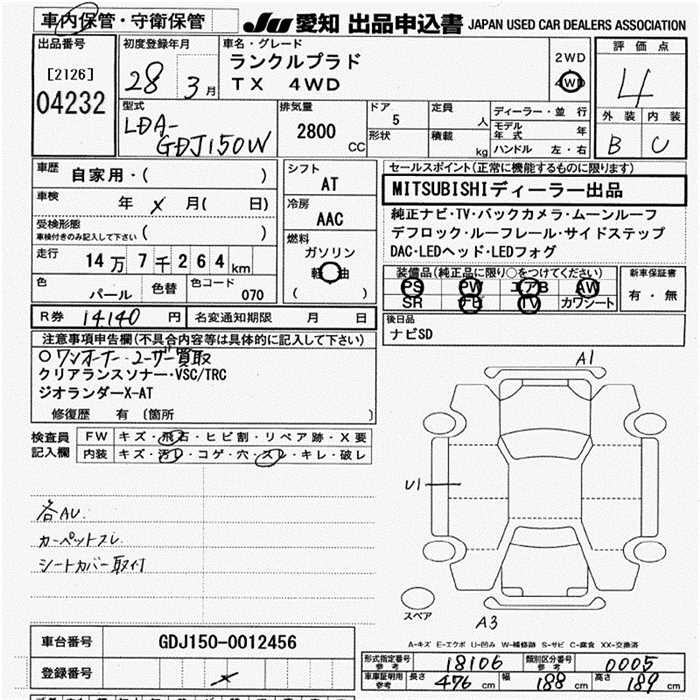 車内保管・守衛保管
JU 愛知 出品申込書 JAPAN USED CAR DEALERS ASSOCIATION
出品番号
[2126]
04232
初度登録年月
28年3月
車名・グレード
ランクルプラド
TX 4WD
2WD
4WD
評価点
4
外装 内装
B C
型式
LDA-
GDJ150W
排気量
2800
CC
ドア
5
形状
定員
人
積載
kg
ディーラー・並行
モデル
年式 年
ハンドル 左・右
車歴
自家用・( )
車検
年 メ 月( 日)
受検形態
車検付きのみ記入して下さい ( )
走行
14万7千264km
色
パール
色替
色コード
070
シフト
AT
冷房
AAC
燃料
ガソリン
軽油
( )
セールスポイント(正常に機能するものに限ります)
MITSUBISHIディーラー出品
純正ナビ・TV・バックカメラ・ムーンルーフ
デフロック・ルーフレール・サイドステップ
DAC・LEDヘッド・LEDフォグ
装備品(純正品に限り○をつけてください)
PS PW エアB AW
SR TV カワシート
新車保証書
有・無
R券 14140円
名変通知期限 月 日
後日品
ナビSD
注意事項申告欄(不具合内容等は具体的に記入して下さい)
○ワンオーナー ユーザー買取
クリアランスソナー・VSC/TRC
ジオランダーX-AT
修復歴 有 〔箇所 〕
検査員
記入欄
FW キズ・飛石・ヒビ割・リペア跡・X要
内装 キズ・汚レ・コゲ・穴・スレ・キレ・破レ
各AU.
カーペットスレ
シートカバー取付
A1
U1
スペア
A3
A-キズ E-エクボ U-凹み W-補修跡 S-サビ C-腐食 XX-交換済
車台番号
GDJ150-0012456
登録番号
メ
形式指定番号
参考
18106
類別区分番号
参考
0005
車庫証明用
参考
長さ 476cm
幅 188cm
高さ 189cm